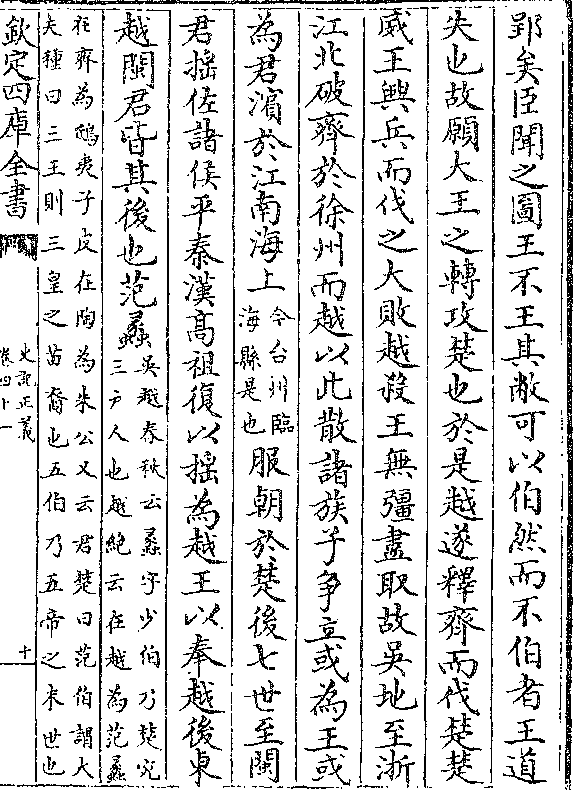 郢矣臣聞之圖王不王其敝可以伯然而不伯者王道
失也故願大王之轉攻楚也於是越遂釋齊而伐楚楚
威王興兵而伐之大敗越殺王無彊盡取故吳地至浙
江北破齊於徐州而越以此散諸族子爭立或為王或
為君濱於江南海上今台州臨海縣是也服朝於楚後七世至閩
君揺佐諸侯平秦漢髙祖復以揺為越王以奉越後東
越閩君皆其後也范蠡吳越春秋云蠡字少伯乃楚宛三戶人也越絶云在越為范蠡
在齊為鴟夷子皮在陶為朱公又云君楚曰范伯謂大
夫種曰三王則三皇之苗裔也五伯乃五帝之末世也
欽定四庫全書
史記正義
卷四十一
十